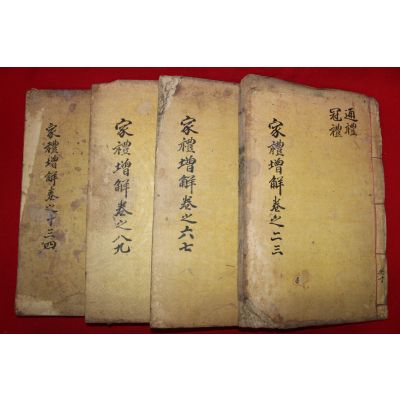 通禮
冠禮
家禮增解卷之二三
家禮增解卷之六七
家禮增解卷之八九
家禮增解卷之十三四